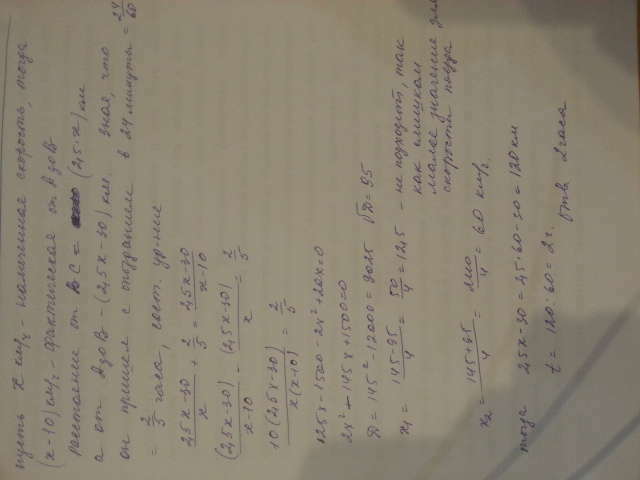 пусть x км/ч - намеченная скорость, тогда
(x-10) км/ч - фактическая от A до B
расстояние от BC = (2,5·x) км
а от A до B - (2,5x-30) км. зная, что
он пришел с опозданием в 24 минуты = 24/60
= 2/5 часа, сост. ур-ние
(2,5x-30)/x + 2/5 = (2,5x-30)/(x-10)
(2,5x-30)/(x-10) - (2,5x-30)/x = 2/5
10(2,5x-30)/(x(x-10)) = 2/5
125x-1500-2x²+20x=0
2x²-145x+1500=0
D=145²-12000=9025 √D=95
x₁ = (145-95)/4 = 50/4 = 12,5 - не подходит, так
как слишком
малое значение для
скорости поезда
x₂ = (145+95)/4 = 240/4 = 60 км/ч.
тогда 2,5x-30=2,5·60-30=120 км
t = 120:60=2ч. Отв 2 часа